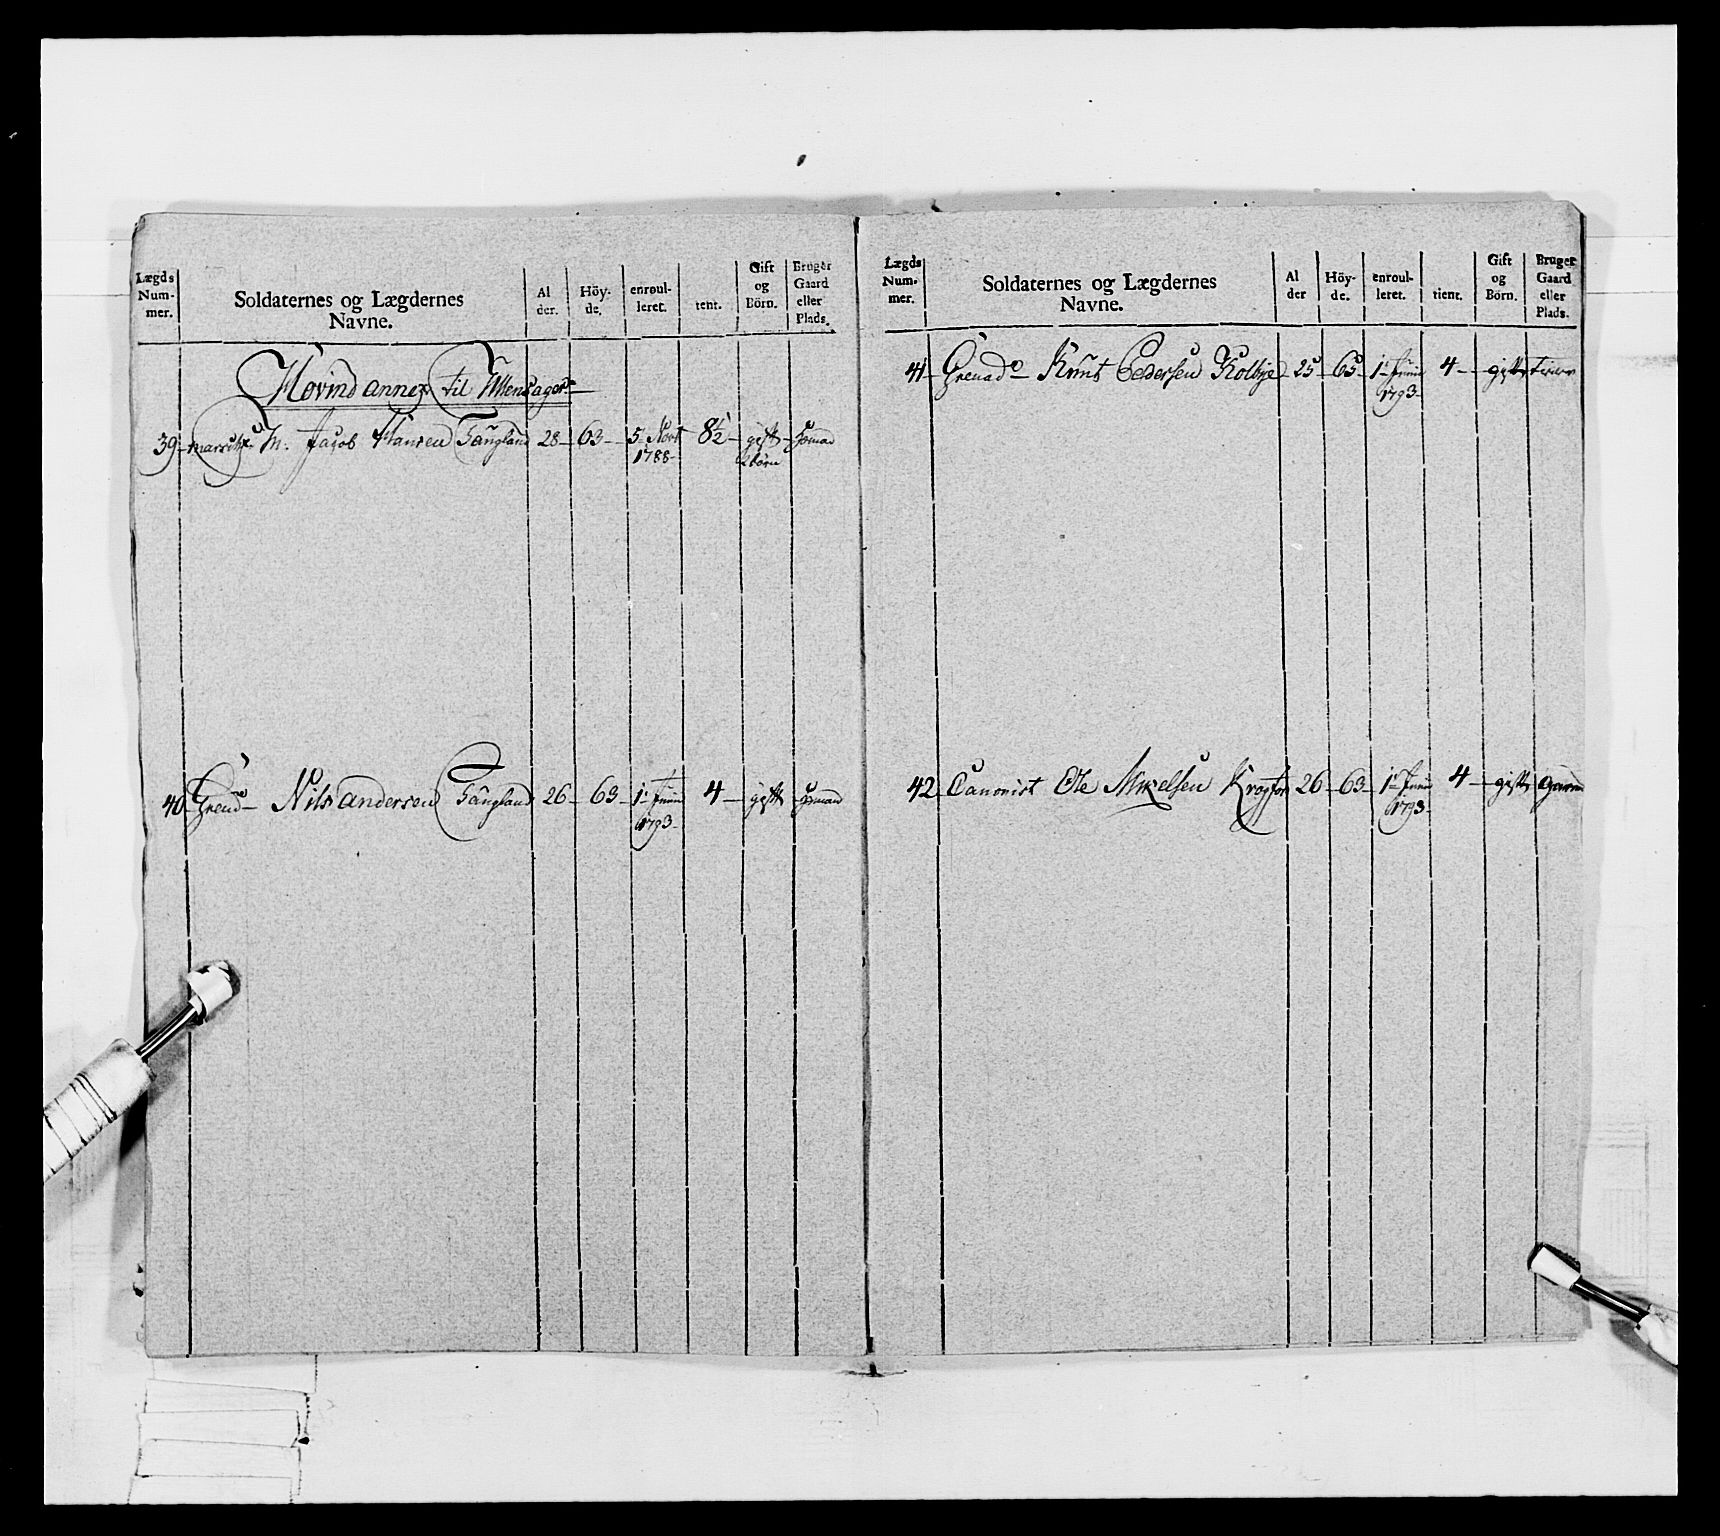 Lægds Num- mer.
Soldaternes og Lægdernes Navne.
Al der.
Höy- de.
enroul- leret.
tient.
Gift og Börn.
Bruger Gaard eller Plads.
Hovind annex til Ullensager
39 M. Jacob Hansen 28 63 5 1788 8½ gift 2 börn
40 Grend Nils Andersen 26 63 1 Junii 1793 4 gift
Lægds Num- mer.
Soldaternes og Lægdernes Navne.
Al der
Höy- de.
enroul- leret.
tient.
Gift og Börn.
Bruger Gaard eller Plads.
41 Grenad Knut Pedersen Kolbye 25 65 1 Junii 1793 4 gift
42 Canonist Ole Mikelsen 26 63 1 Junii 1793 4 gift